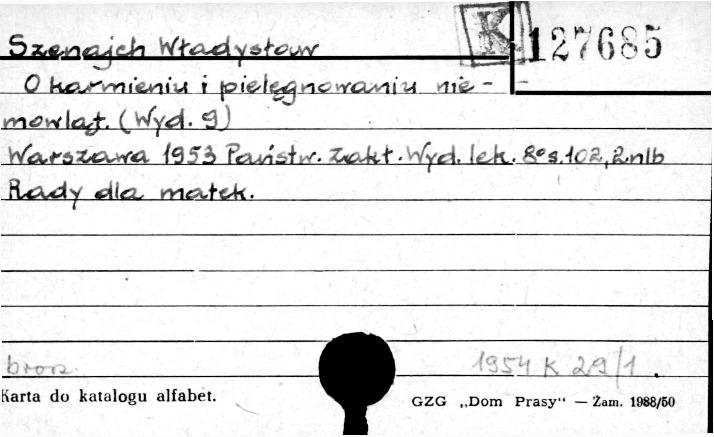 K 127685
Szenajch Władysław
O karmieniu i pielęgnowaniu nie-
mowląt. (Wyd. 9)
Warszawa 1953 Państw. Zakł. Wyd. lek. 8° s. 102, 2 nlb
Rady dla matek.
brosz.
1954 K 29/1.
Karta do katalogu alfabet.
GZG „Dom Prasy“ — Zam. 1988/50